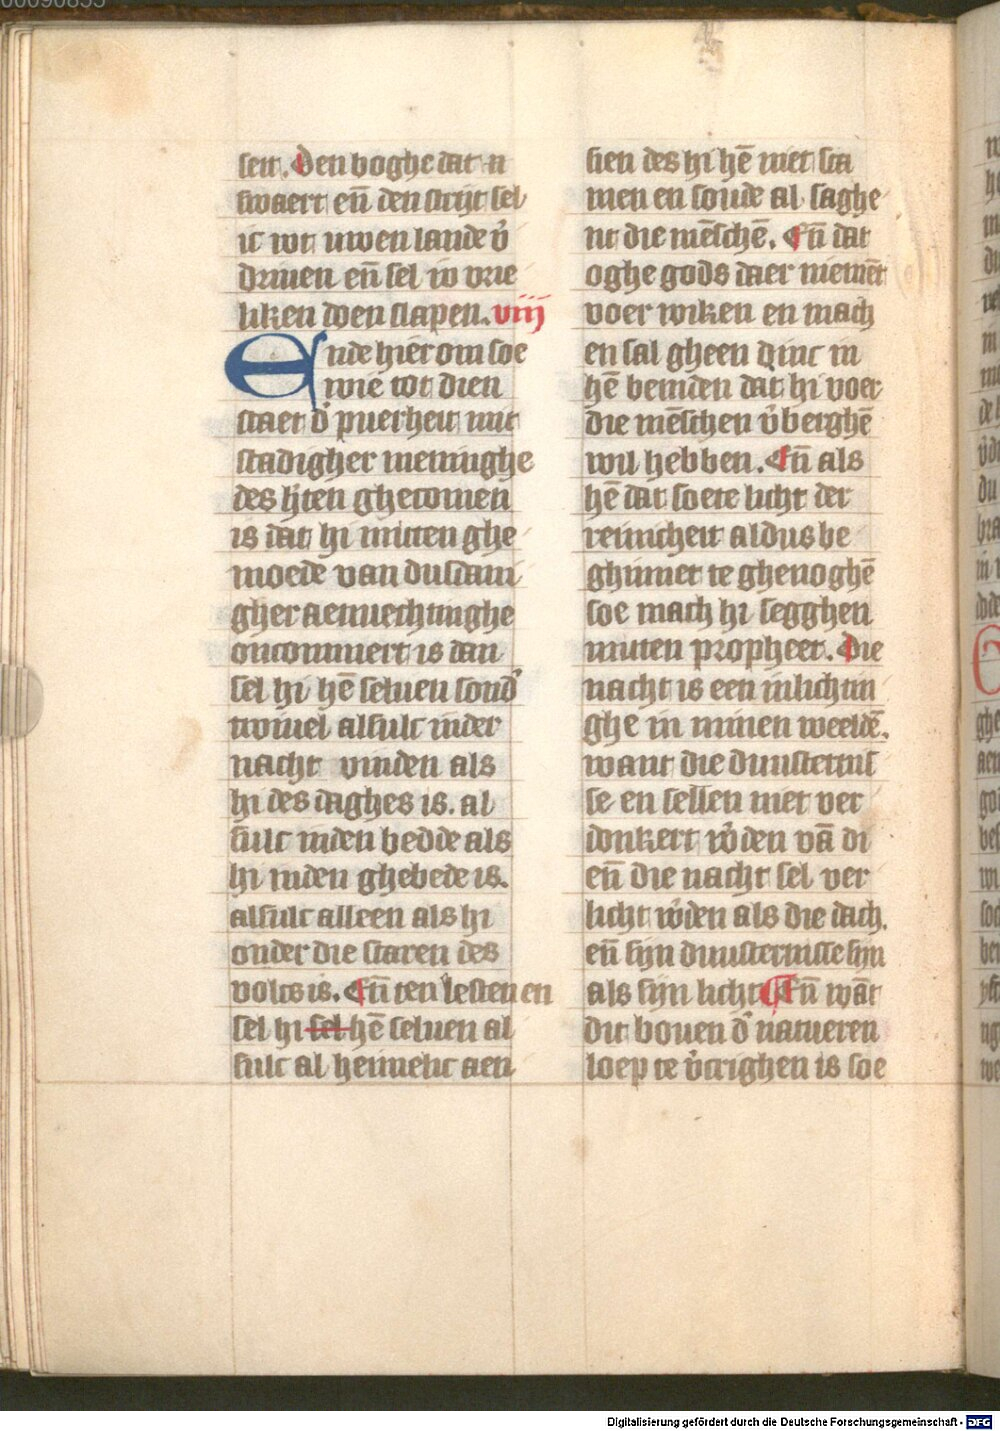 seit. Den boghe dat n
swaert en̄ den strijt sel
ic wt uwen lande v̉
driuen en̄ sel io vrie
liken doen slapen. viij
Ende hier om soe
wie tot dien
staet d̉ puerheit mit
stadigher meninghe
des h̓ten ghecomen
is dat hi mitten ghe
moede van dusdani
gher aenuechtinghe
oncommert is dan
sel hi hē seluen sond̉
twiuel alsulc inder
nacht vinden als
hi des daghes is. al
sulc inden bedde als
hi inden ghebede is.
alsulc alleen als hi
onder die scaren des
volcs is. En̄ ten lesten en
sel hi sel hē seluen al
sulc al heimelic aen
sien des hi hē niet sca
men en soude al saghe
nt die mēschē. En̄ dat
oghe gods daer niemēt
voer wiken en mach
en sal gheen dinc in
hē beuinden dat hi voer
die mēschen v̉berghē
wil hebben. En̄ als
hē dat soete licht der
reinicheit aldus be
ghinnet te ghenoghē
soe mach hi segghen
mitten propheet. Die
nacht is een inlichtin
ghe in minen weeldē.
want die duusternis
se en sellen niet ver
donkert w̉den vā di
en̄ die nacht sel ver
licht w̉den als die dach.
en̄ sijn duusternisse sijn
als sijn licht En̄ wāt
dit bouen d̉ natueren
loep te v̉crighen is soe
Digitalisierung gefördert durch die Deutsche Forschungsgemeinschaft - DFG